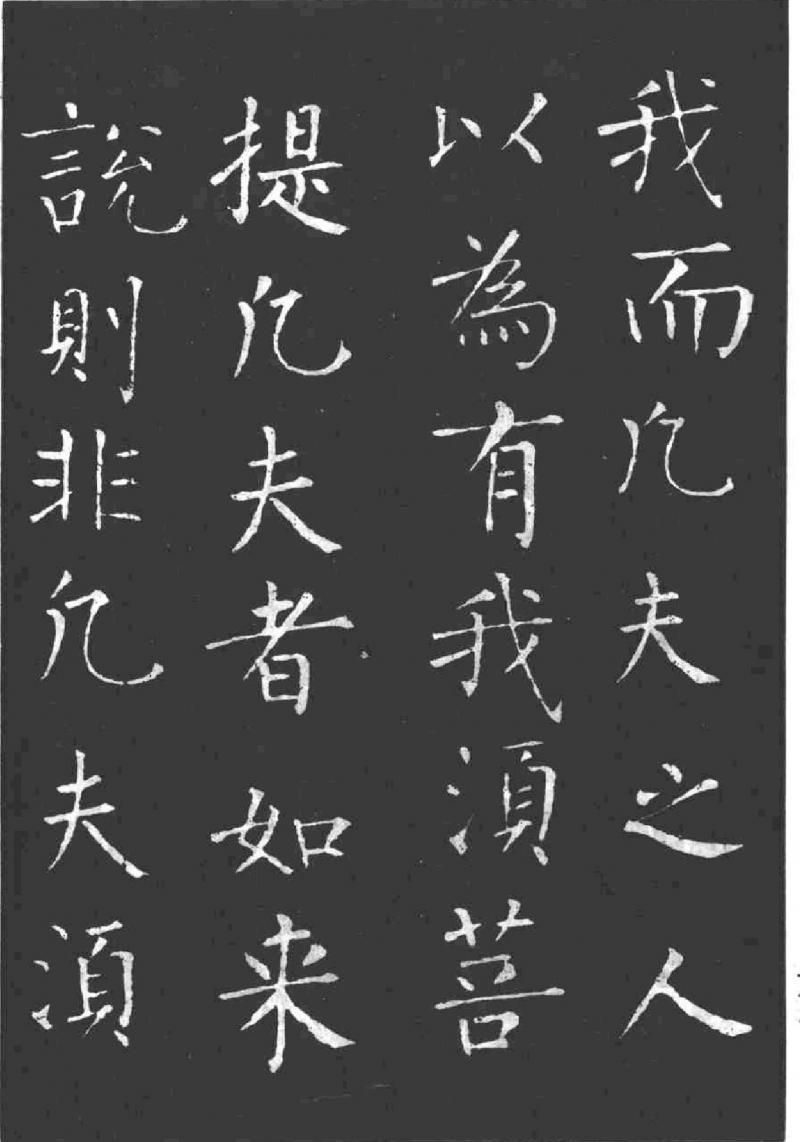 我而凡夫之人
以為有我須菩
提凡夫者如来
說則非凡夫須